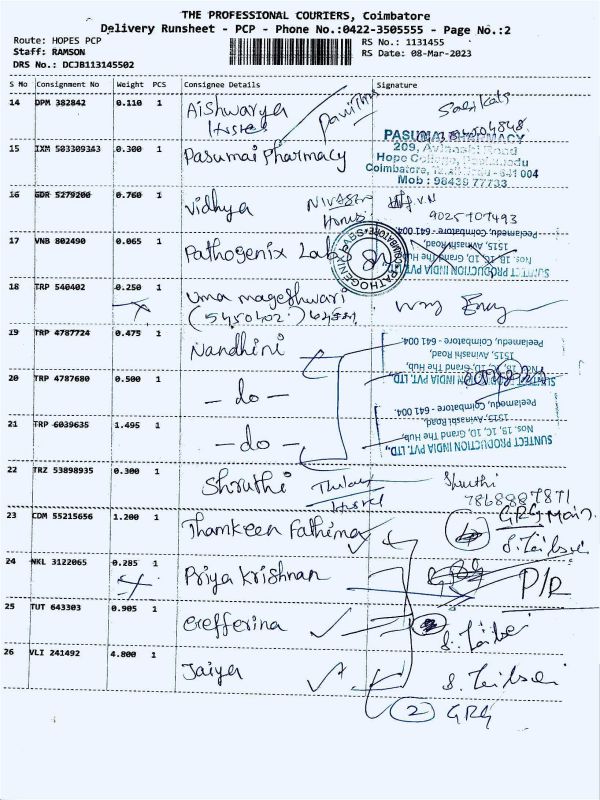 THE PROFESSIONAL COURIERS, Coimbatore
Delivery Runsheet - PCP - Phone No.:0422-3505555 - Page No.:2
Route: HOPES PCP
RS No.: 1131455
Staff: RAMSON
RS Date: 08-Mar-2023
DRS No.: DCJB113145502
S No Consignment No Weight PCS Consignee Details Signature
14 DPM 382842 0.110 1 Aishwarya
Hostel
15 IXM 503309343 0.300 1 Pasumai Pharmacy
PASUMAI PHARMACY
209, Avinashi Road
Hope College, Peelamedu
Coimbatore, - 641 004
Mob : 98439 77733
16 GDR 5279200 0.760 1 Vidhya
9025707493
17 VNB 802490 0.065 1 Pathogenix Lab
SUNTECT PRODUCTION INDIA PVT. LTD.,
Nos. 1B, 1C, 1D, Grand The Hub,
1515, Avinashi Road,
Peelamedu, Coimbatore - 641 004.
18 TRP 540402 0.250 1 Uma mageshwari
(5450402)
19 TRP 4787724 0.475 1 Nandhini
20 TRP 4787680 0.500 1 - do -
SUNTECT PRODUCTION INDIA PVT. LTD.,
Nos. 1B, 1C, 1D, Grand The Hub,
1515, Avinashi Road,
Peelamedu, Coimbatore - 641 004.
21 TRP 6039635 1.495 1 - do -
SUNTECT PRODUCTION INDIA PVT. LTD.,
Nos. 1B, 1C, 1D, Grand The Hub,
1515, Avinashi Road,
Peelamedu, Coimbatore - 641 004.
22 TRZ 53898935 0.300 1 Shruthi
Hostel
Shruthi
23 CDM 55215656 1.200 1 Thamkeen Fathima
GRG Main
24 NKL 3122065 0.285 1 Priya Krishnan
P/P
25 TUT 643303 0.905 1 Erefferina
26 VLI 241492 4.800 1 Jaiya
2 GRG